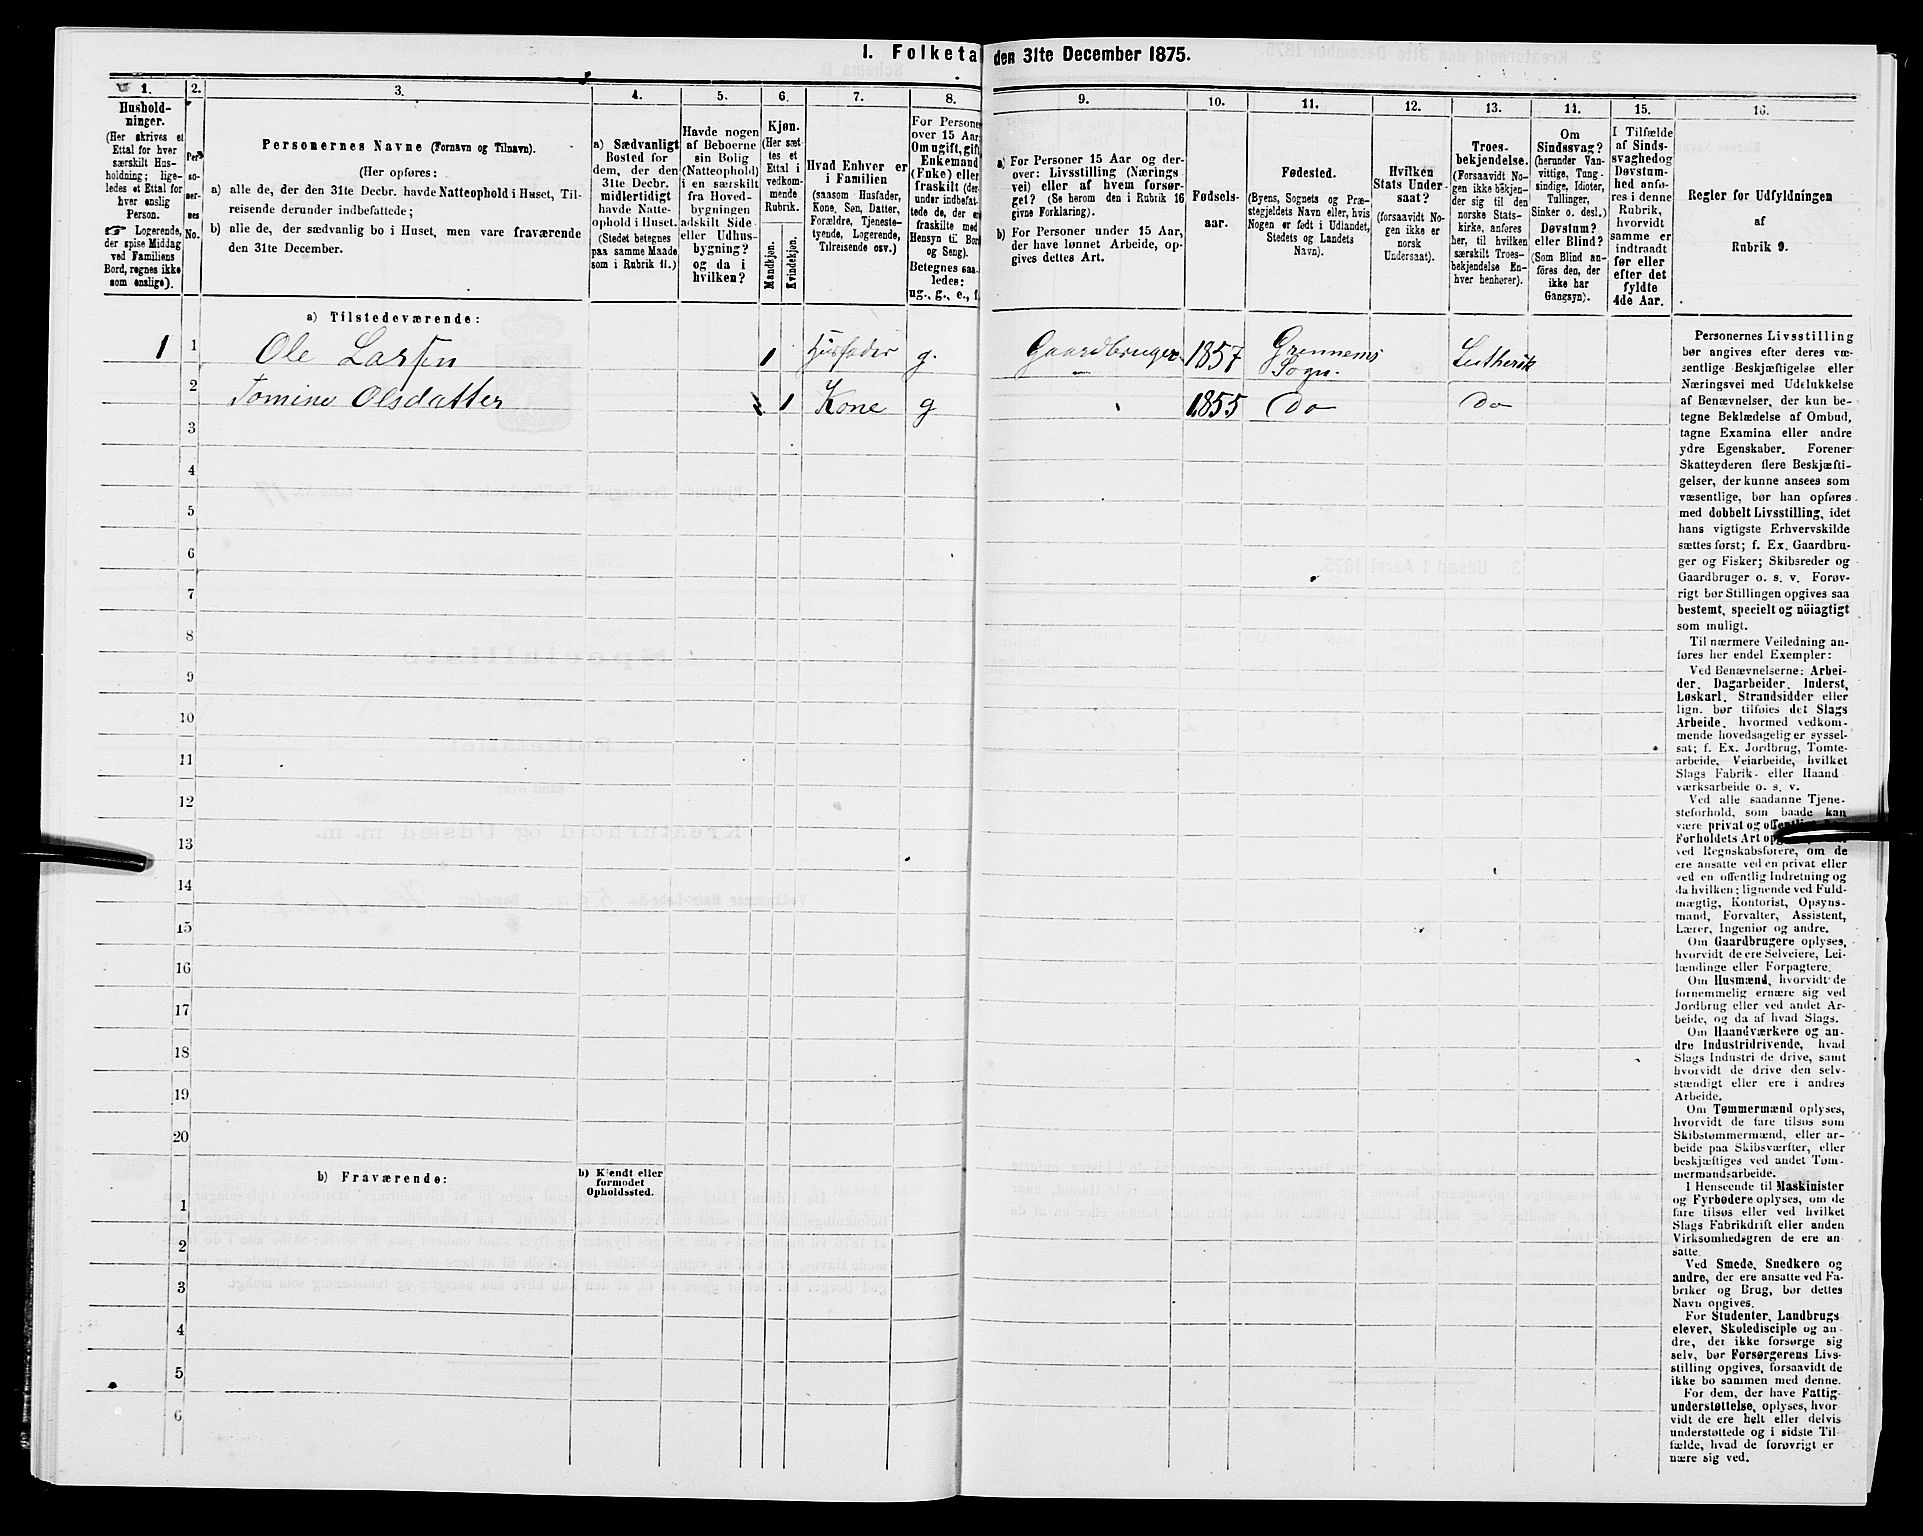 I. Folketal den 31te December 1875.
1.
2.
3.
4.
5.
6.
7.
8.
9.
10.
11.
12.
13.
14.
15.
16.
Hushold-
ninger.
(Her skrives et
Ettal for hver
særskilt Hus-
holdning; lige-
ledes et Ettal for
hver enslig
Person.
☞ Logerende,
der spise Middag
ved Familiens
Bord, regnes ikke
som enslige).
Per-
so-
ner-
nes
No.
Personernes Navne (Fornavn og Tilnavn).
(Her opføres:
a) alle de, der den 31te Decbr. havde Natteophold i Huset, Til-
reisende derunder indbefattede;
b) alle de, der sædvanlig bo i Huset, men vare fraværende
den 31te December.
a) Sædvanligt
Bosted for
dem, der den
31te Decbr.
midlertidigt
havde Natte-
ophold i Huset.
(Stedet betegnes
paa samme Maade
som i Rubrik 11.)
Havde nogen
af Beboerne
sin Bolig
(Natteophold)
i en særskilt
fra Hoved-
bygningen
adskilt Side
eller Udhus-
bygning?
og da i
hvilken?
Kjøn.
(Her sæt-
tes et
Ettal i
vedkom-
mende
Rubrik.
Mandkjøn.
Kvindekjøn.
Hvad Enhver er
i Familien
(saasom Husfader,
Kone, Søn, Datter,
Forældre, Tjeneste-
tyende, Logerende,
Tilreisende osv.)
For Persone
over 15 Aar
Om ugift, gift
Enkemand
(Enke) eller
fraskilt (der-
under indbefat-
tede de, der er
fraskilte med
Hensyn til Bor
og Seng).
Betegnes saa-
ledes:
ug., g., e., f.
a) For Personer 15 Aar og der-
over: Livsstilling (Nærings-
vei) eller af hvem forsør-
get? (Se herom den i Rubrik 16
givne Forklaring).
b) For Personer under 15 Aar,
der have lønnet Arbeide, op-
gives dettes Art.
Fødsels-
aar.
Fødested.
(Byens, Sognets og Præ-
stegjeldets Navn eller, hvis
Nogen er født i Udlandet,
Stedets og Landets
Navn).
Hvilken
Stats Under-
saat?
(forsaavidt No-
gen ikke er
norsk
Undersaat).
Troes-
bekjendelse.
(Forsaavidt No-
gen ikke bekjen-
der sig til den
norske Stats-
kirke, anføres
her, til hvilken
særskilt Troes-
bekjendelse En-
hver henhører).
Om
Sindssvag?
(herunder Van-
vittige, Tung-
sindige, Idioter,
Tullinger,
Sinker o. desl.)
Døvstum?
eller Blind?
(Som Blind an-
føres den, der
ikke har
Gangsyn).
I Tilfælde
af Sinds-
svaghed og
Døvstum-
hed anfø-
res i denne
Rubrik,
hvorvidt
samme er
indtraadt
før eller
efter det
fyldte
4de Aar.
Regler for Udfyldningen
af
Rubrik 9.
a) Tilstedeværende:
1 1 Ole Larsen 1 Husfader g. Gaardbruger 1857 Grennems Sogn. Luthersk
2 Tomine Olsdatter 1 Kone g 1855 Do Do
3
4
5
6
7
8
9
10
11
12
13
14
15
16
17
18
19
20
b) Fraværende:
b) Kjendt eller
formodet
Opholdssted.
1
2
3
4
5
6
Personernes Livsstilling
bør angives efter deres væ-
sentlige Beskjæftigelse eller
Næringsvei med Udelukkelse
af Benævnelser, der kun be-
tegne Beklædelse af Ombud,
tagne Examina eller andre
ydre Egenskaber. Forener
Skatteyderen flere Beskjæfti-
gelser, der kunne ansees som
væsentlige, bør han opføres
med dobbelt Livsstilling, idet
hans vigtigste Erhvervskilde
sættes først; f. Ex. Gaardbru-
ger og Fisker; Skibsreder og
Gaardbruger o. s. v. Forøv-
rigt bør Stillingen opgives saa
bestemt, specielt og nöiagtigt
som muligt.
Til nærmere Veiledning an-
føres her endel Exempler:
Ved Benævnelserne: Arbei-
der, Dagarbeider, Inderst,
Løskarl, Strandsidder eller
lign. bør tilføies det Slags
Arbeide, hvormed vedkom-
mende hovedsagelig er syssel-
sat; f. Ex. Jordbrug, Tomte-
arbeide, Veiarbeide, hvilket
Slags Fabrik- eller Haand-
værksarbeide o. s. v.
Ved alle saadanne Tjene-
steforhold, som baade kan
være privat og
Forholdets Art
ved Regnskabsførere, om de
ere ansatte ved en privat eller
ved en offentlig Indretning og
da hvilken; lignende ved Fuld-
mægtig, Kontorist, Opsyns-
mand, Forvalter, Assistent,
Lærer, Ingeniør og andre.
Om Gaardbrugere oplyses,
hvorvidt de ere Selveiere, Lei-
lændinge eller Forpagtere.
Om Husmænd, hvorvidt de
fornemmelig ernære sig ved
Jordbrug eller ved andet Ar-
beide, og da af hvad Slags.
Om Haandværkere og an-
dre Industridrivende, hvad
Slags Industri de drive, samt
hvorvidt de drive den selv-
stændigt eller ere i andres
Arbeide.
Om Tømmermænd oplyses,
hvorvidt de fare tilsøs som
Skibstømmermænd, eller ar-
beide paa Skibsværfter, eller
beskjæftiges ved andet Tøm-
mermandsarbeide.
I Henseende til Maskinister
og Fyrbødere oplyses, om de
fare tilsøs eller ved hvilket
Slags Fabrikdrift eller anden
Virksomhedsgren de ere an-
satte.
Ved Smede, Snedkere og
andre, der ere ansatte ved Fa-
briker og Brug, bør dettes
Navn opgives.
For Studenter, Landbrugs-
elever, Skoledisciple og an-
dre, der ikke forsørge sig
selv, bør Forsørgerens Livs-
stilling opgives, forsaavidt de
ikke bo sammen med denne.
For dem, der have Fattig-
understøttelse, oplyses, hvor-
vidt de ere helt eller delvis
understøttede og i sidste Til-
fælde, hvad de forøvrigt er-
nære sig ved.